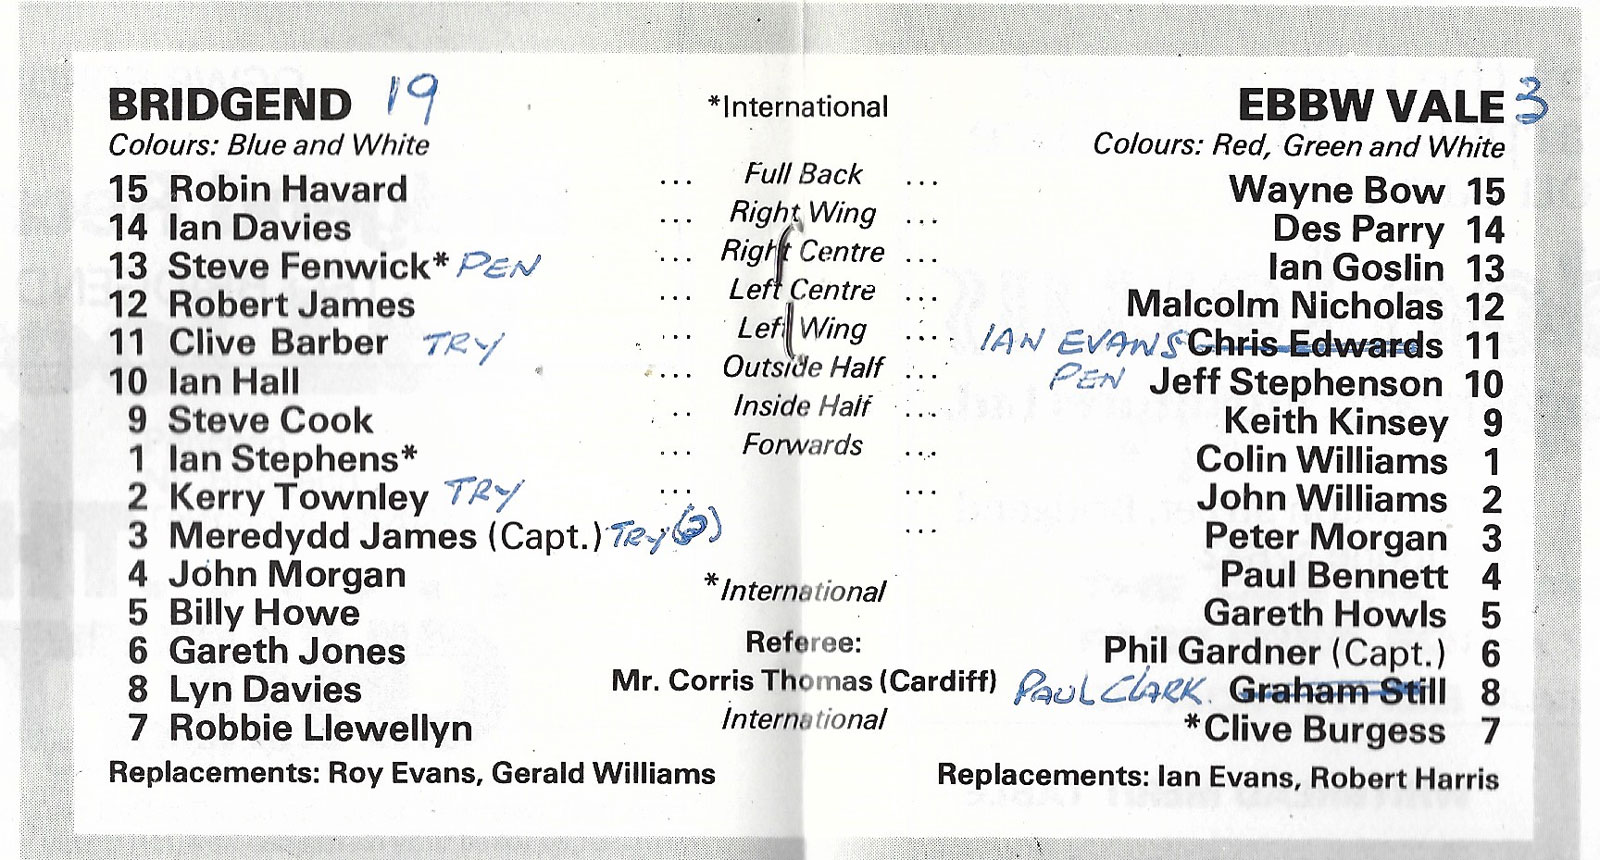 BRIDGEND 19 *International EBBW VALE 3
Colours: Blue and White Colours: Red, Green and White
15 Robin Havard ... Full Back ... Wayne Bow 15
14 Ian Davies ... Right Wing ... Des Parry 14
13 Steve Fenwick* PEN ... Right Centre ... Ian Goslin 13
12 Robert James ... Left Centre ... Malcolm Nicholas 12
11 Clive Barber TRY ... Left Wing ... IAN EVANS Chris Edwards 11
10 Ian Hall ... Outside Half ... PEN Jeff Stephenson 10
9 Steve Cook .. Inside Half ... Keith Kinsey 9
1 Ian Stephens* ... Forwards ... Colin Williams 1
2 Kerry Townley TRY ... ... John Williams 2
3 Meredydd James (Capt.) TRY (2) ... Peter Morgan 3
4 John Morgan Paul Bennett 4
5 Billy Howe *International Gareth Howls 5
6 Gareth Jones Referee: Phil Gardner (Capt.) 6
8 Lyn Davies Mr. Corris Thomas (Cardiff) PAUL CLARK. Graham Still 8
7 Robbie Llewellyn International *Clive Burgess 7
Replacements: Roy Evans, Gerald Williams Replacements: Ian Evans, Robert Harris